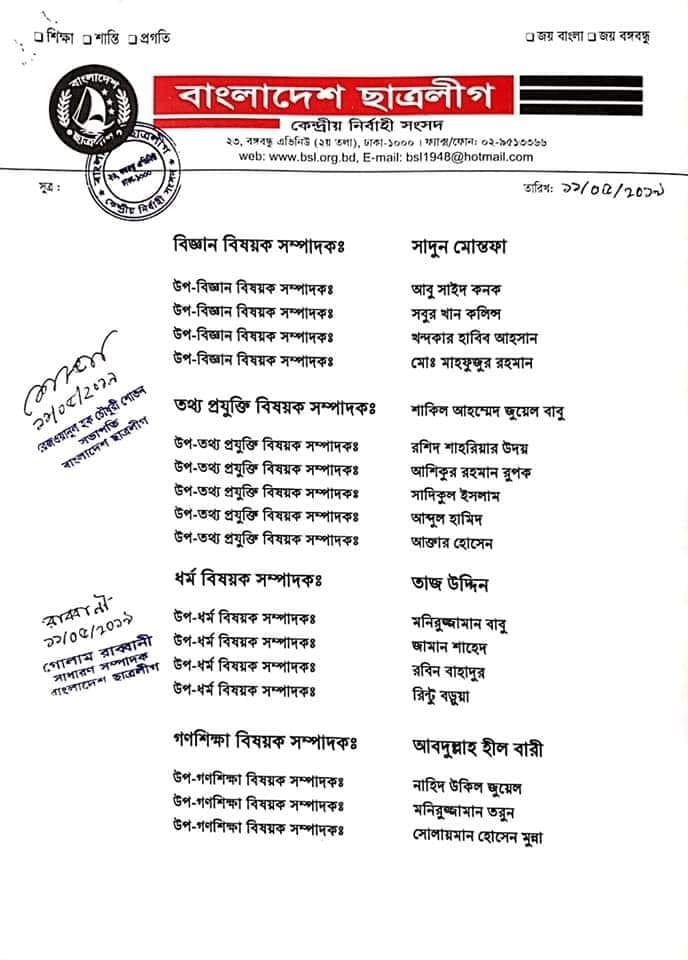 শিক্ষা শান্তি প্রগতি
জয় বাংলা জয় বঙ্গবন্ধু
বাংলাদেশ
ছাত্রলীগ
বাংলাদেশ ছাত্রলীগ
কেন্দ্রীয় নির্বাহী সংসদ
২৩, বঙ্গবন্ধু এভিনিউ (২য় তলা), ঢাকা-১০০০ । ফ্যাক্স/ফোন: ০২-৯৫১৩৩৬৬
web: www.bsl.org.bd, E-mail: bsl1948@hotmail.com
বাংলাদেশ ছাত্রলীগ
২৩, বঙ্গবন্ধু এভিনিউ
ঢাকা-১০০০
কেন্দ্রীয় নির্বাহী সংসদ
সূত্র :
তারিখ: ১১/০৫/২০১৯
বিজ্ঞান বিষয়ক সম্পাদকঃ সাদুন মোস্তফা
উপ-বিজ্ঞান বিষয়ক সম্পাদকঃ আবু সাইদ কনক
উপ-বিজ্ঞান বিষয়ক সম্পাদকঃ সবুর খান কলিন্স
উপ-বিজ্ঞান বিষয়ক সম্পাদকঃ খন্দকার হাবিব আহসান
উপ-বিজ্ঞান বিষয়ক সম্পাদকঃ মোঃ মাহফুজুর রহমান
১১/০৫/২০১৯
রেজওয়ানুল হক চৌধুরী শোভন
সভাপতি
বাংলাদেশ ছাত্রলীগ
তথ্য প্রযুক্তি বিষয়ক সম্পাদকঃ শাকিল আহম্মেদ জুয়েল বাবু
উপ-তথ্য প্রযুক্তি বিষয়ক সম্পাদকঃ রশিদ শাহরিয়ার উদয়
উপ-তথ্য প্রযুক্তি বিষয়ক সম্পাদকঃ আশিকুর রহমান রুপক
উপ-তথ্য প্রযুক্তি বিষয়ক সম্পাদকঃ সাদিকুল ইসলাম
উপ-তথ্য প্রযুক্তি বিষয়ক সম্পাদকঃ আব্দুল হামিদ
উপ-তথ্য প্রযুক্তি বিষয়ক সম্পাদকঃ আক্তার হোসেন
ধর্ম বিষয়ক সম্পাদকঃ তাজ উদ্দিন
উপ-ধর্ম বিষয়ক সম্পাদকঃ মনিরুজ্জামান বাবু
উপ-ধর্ম বিষয়ক সম্পাদকঃ জামান শাহেদ
উপ-ধর্ম বিষয়ক সম্পাদকঃ রবিন বাহাদুর
উপ-ধর্ম বিষয়ক সম্পাদকঃ রিন্টু বড়ুয়া
রাব্বানী
১১/০৫/২০১৯
গোলাম রাব্বানী
সাধারণ সম্পাদক
বাংলাদেশ ছাত্রলীগ
গণশিক্ষা বিষয়ক সম্পাদকঃ আবদুল্লাহ হীল বারী
উপ-গণশিক্ষা বিষয়ক সম্পাদকঃ নাহিদ উকিল জুয়েল
উপ-গণশিক্ষা বিষয়ক সম্পাদকঃ মনিরুজ্জামান তরুন
উপ-গণশিক্ষা বিষয়ক সম্পাদকঃ সোলায়মান হোসেন মুন্না